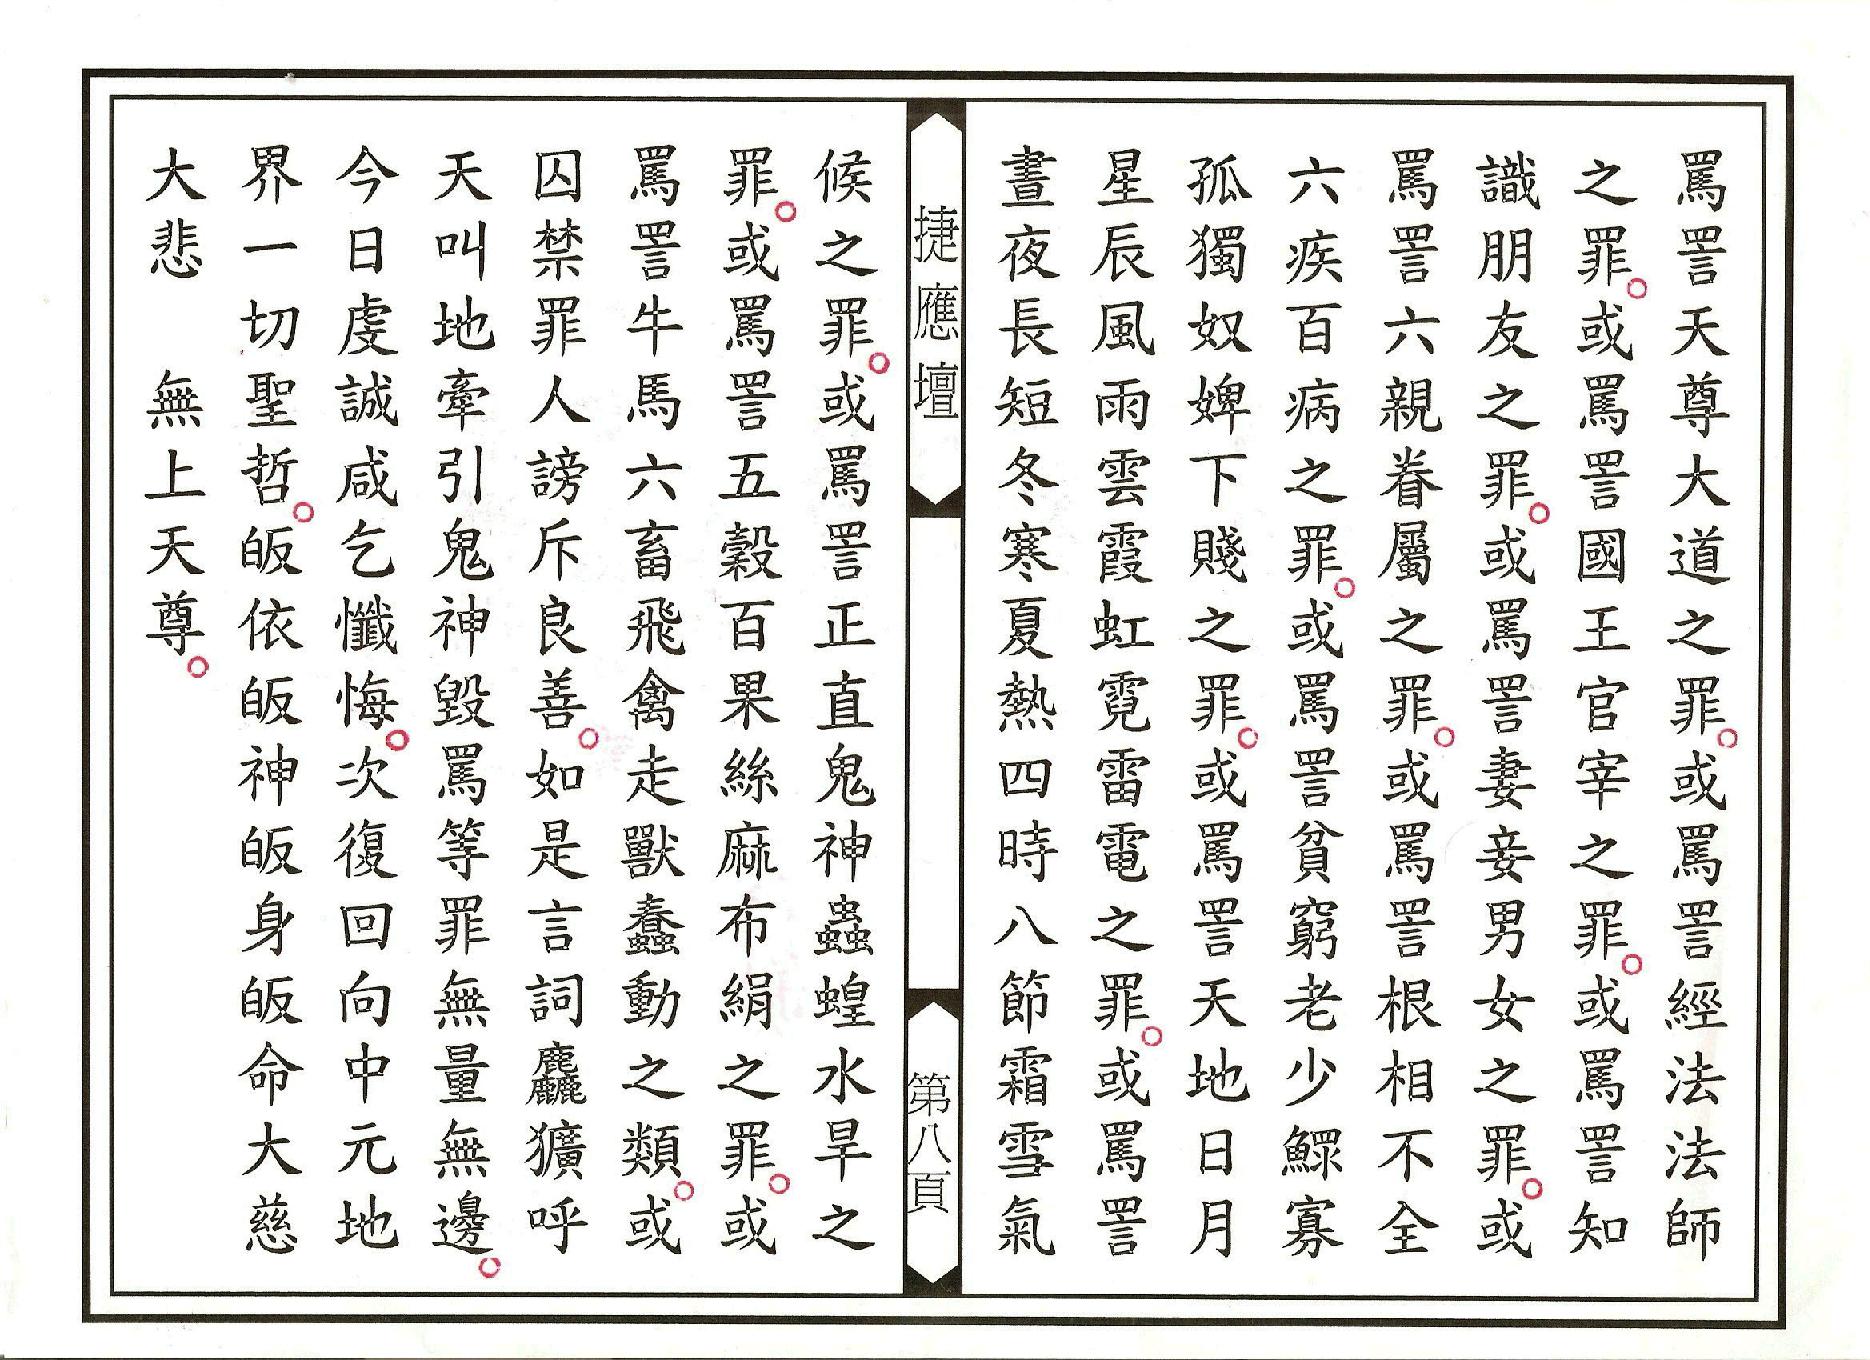 罵詈天尊大道之罪。或罵詈經法法師
之罪。或罵詈國王官宰之罪。或罵詈知
識朋友之罪。或罵詈妻妾男女之罪。或
罵詈六親眷屬之罪。或罵詈根相不全
六疾百病之罪。或罵詈貧窮老少鰥寡
孤獨奴婢下賤之罪。或罵詈天地日月
星辰風雨雲霞虹霓雷電之罪。或罵詈
晝夜長短冬寒夏熱四時八節霜雪氣
捷應壇
第八頁
候之罪。或罵詈正直鬼神蟲蝗水旱之
罪。或罵詈五穀百果絲麻布絹之罪。或
罵詈牛馬六畜飛禽走獸蠢動之類。或
囚禁罪人謗斥良善。如是言詞麤獷呼
天叫地牽引鬼神毀罵等罪無量無邊。
今日虔誠咸乞懺悔。次復回向中元地
界一切聖哲。皈依皈神皈身皈命大慈
大悲　無上天尊。